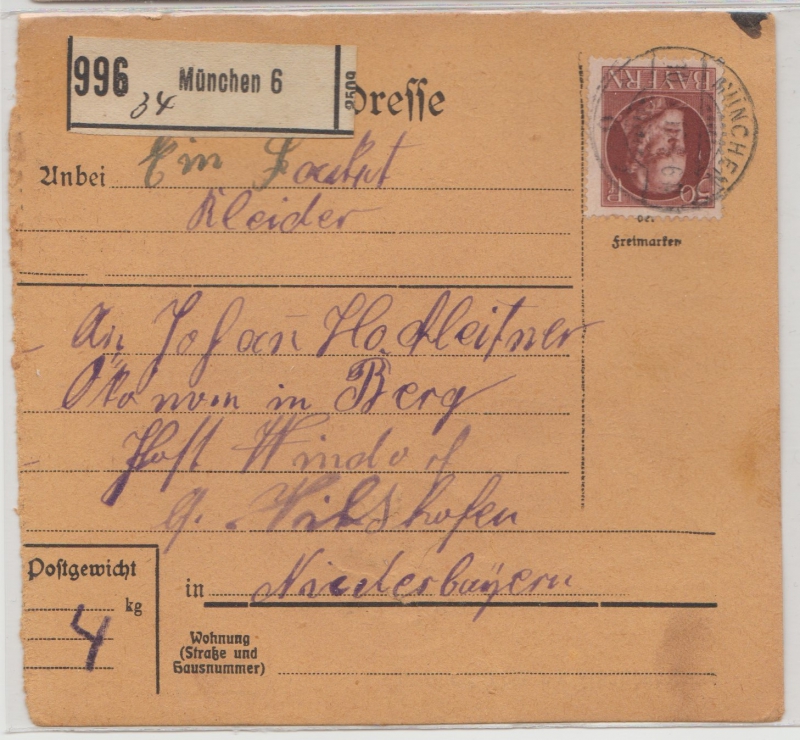 996 München 6
34
2509
dresse
BAYERN
50 Pf
MÜNCHEN
Freimarken
Anbei Ein Packet
Kleider
An Johan̄ Hochleitner
Ökonom in Berg
Post Windorf
g. Vilshofen
Postgewicht
in Niederbayern
kg
4
Wohnung
(Straße und
Hausnummer)